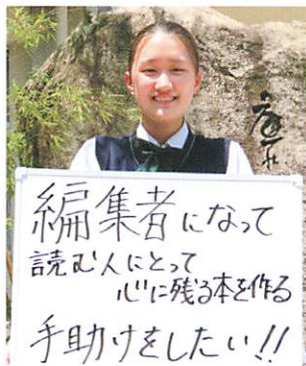 編集者になって
読む人にとって
心に残る本を作る
手助けをしたい!!